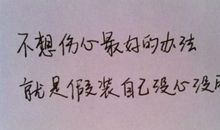 不想伤心最好的办法
就是假装自己没心没